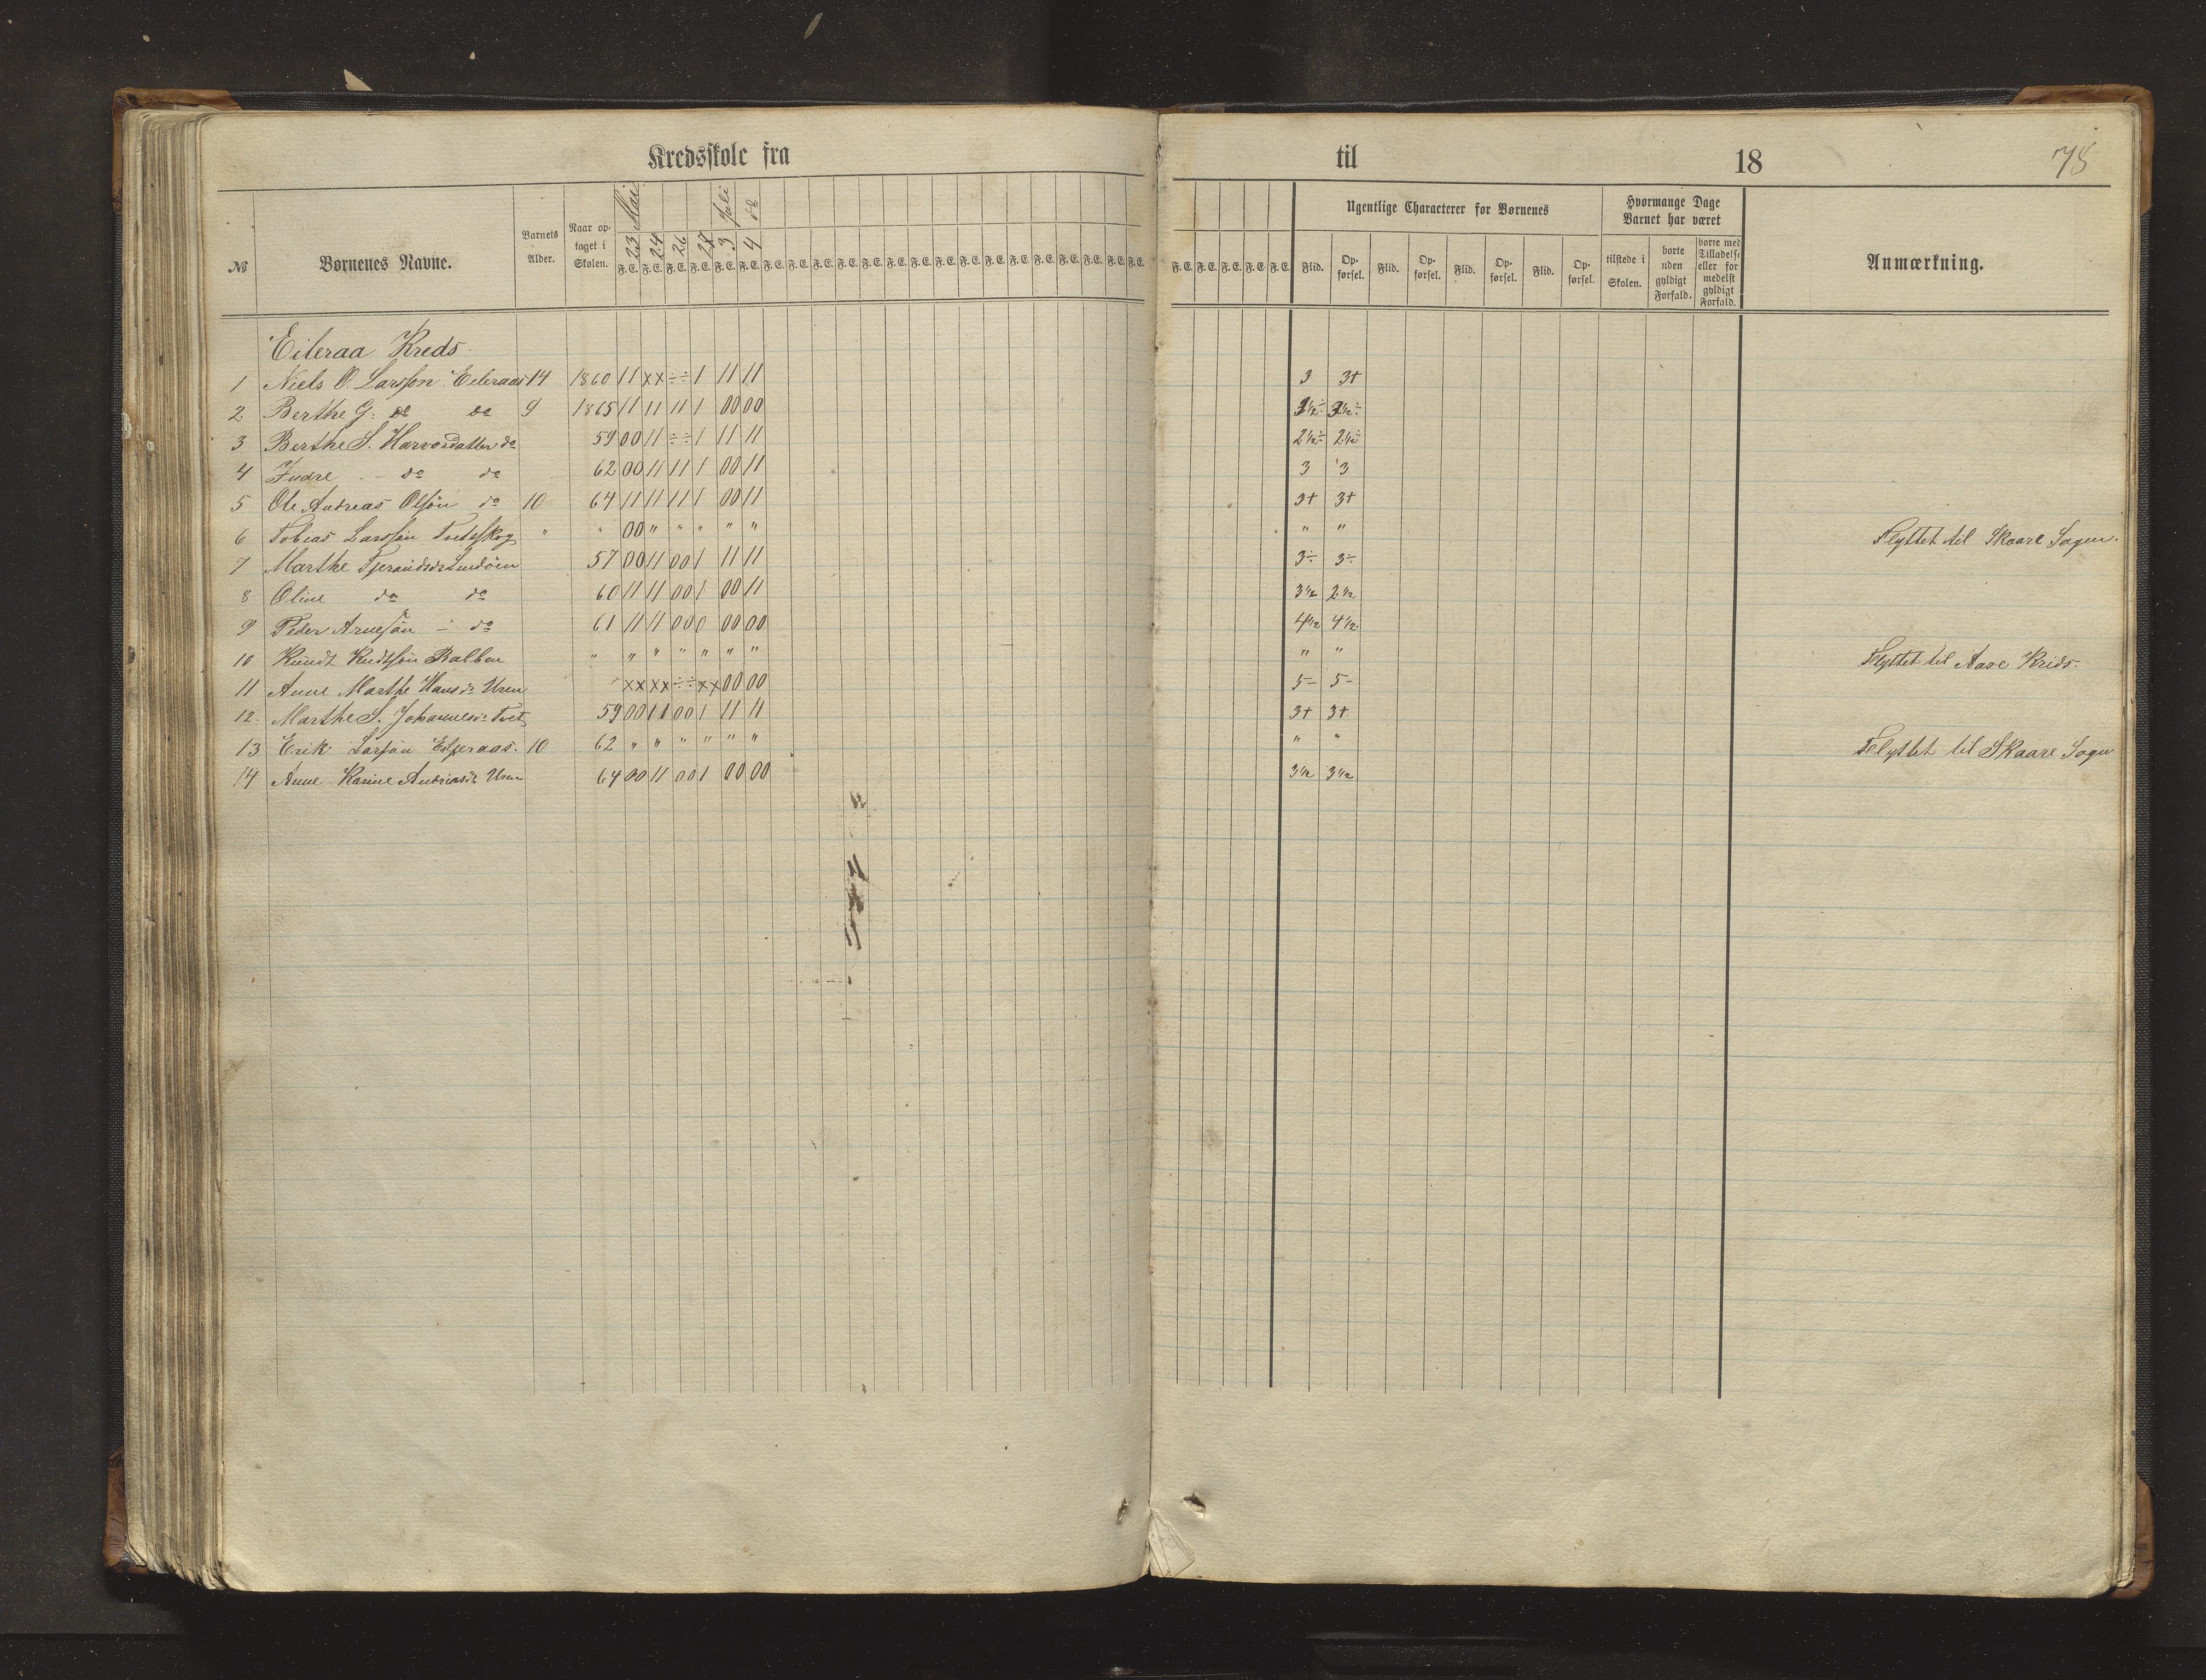 Kredsskole fra til 18 78
№ Børnenes Navne. Barnets Alder. Naar optaget i Skolen. 23 Mai 24 26 28 3 Juli 4 do
F. E. F. E. F. E. F. E. F. E. F. E. F. E. F. E. F. E. F. E. F. E. F. E. F. E. F. E. F. E. F. E. F. E. F. E. F. E. F. E. F. E. F. E. F. E. F. E. F. E. F. E.
Ugentlige Characterer for Børnenes
Flid. Opførsel. Flid. Opførsel. Flid. Opførsel. Flid. Opførsel.
Hvormange Dage Barnet har været
tilstede i Skolen. borte uden gyldigt Forfald. borte med Tilladelse eller formedelst gyldigt Forfald.
Anmærkning.
Eileraa Kreds.
1 Niels O. Larsson Eileraas 14 1860 11 xx ÷÷ 1 11 11 3 3+
2 Berthe G. do do 9 1865 11 11 11 1 00 00 3½÷ 3½÷
3 Berthe S. Harvordatter do 59 00 11 ÷÷ 1 11 11 2½÷ 2½÷
4 do do 62 00 11 11 1 00 11 3 3
5 Ole Andreas Olsön do 10 64 11 11 11 1 00 11 3+ 3+
6 Tobias Larssön Tveteskog " " 00 " " " " " " " Flyttet til Skaare Sogn.
7 Marthe Lindöen 57 00 11 00 1 11 11 3÷ 3÷
8 Oline do do 60 11 11 00 1 00 11 3½ 2½
9 Peder Arnesön - do 61 11 11 00 0 00 00 4½ 4½
10 Knudt Knudtsön Balben " " " " " " " " " Flyttet til Aare Krids.
11 Anne Marthe Hansdr Uren xx xx ÷÷ xx 00 00 5- 5-
12. Marthe S. Johannesdr Tvet 59 00 11 00 1 11 11 3+ 3+
13 Erik Larsön Eiljeraas. 10 62 " " " " " " " " Flyttet til Skaare Sogn
14 Anne Karine Andreasdr Uren 64 00 11 00 1 00 00 3½ 3½